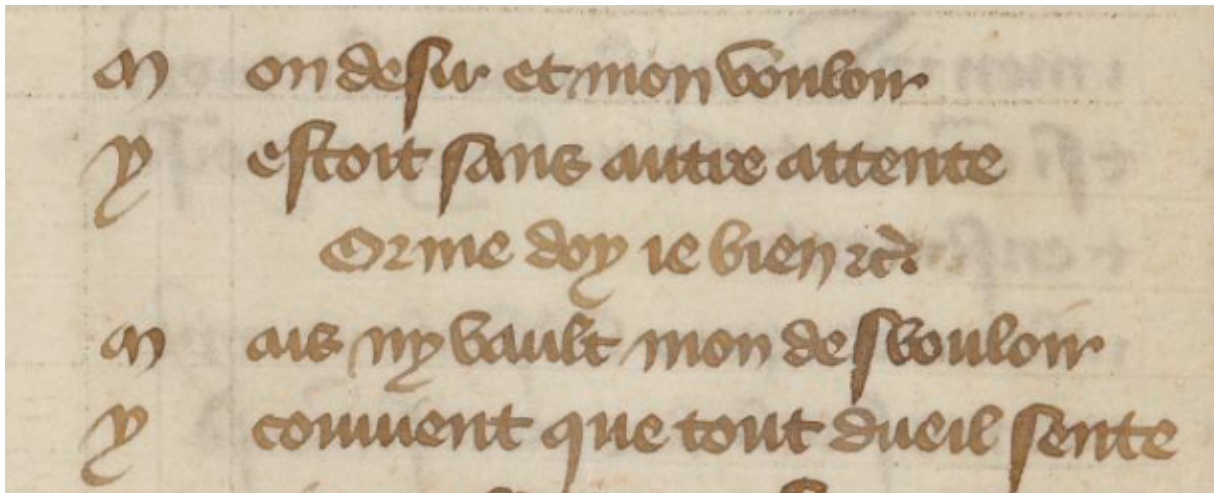 M on desir et mon vouloir
Y estoit sans autre attente
Or me doy ie bien etc̃.
M ais ny vault mon desvouloir
Y convient que tout dueil sente